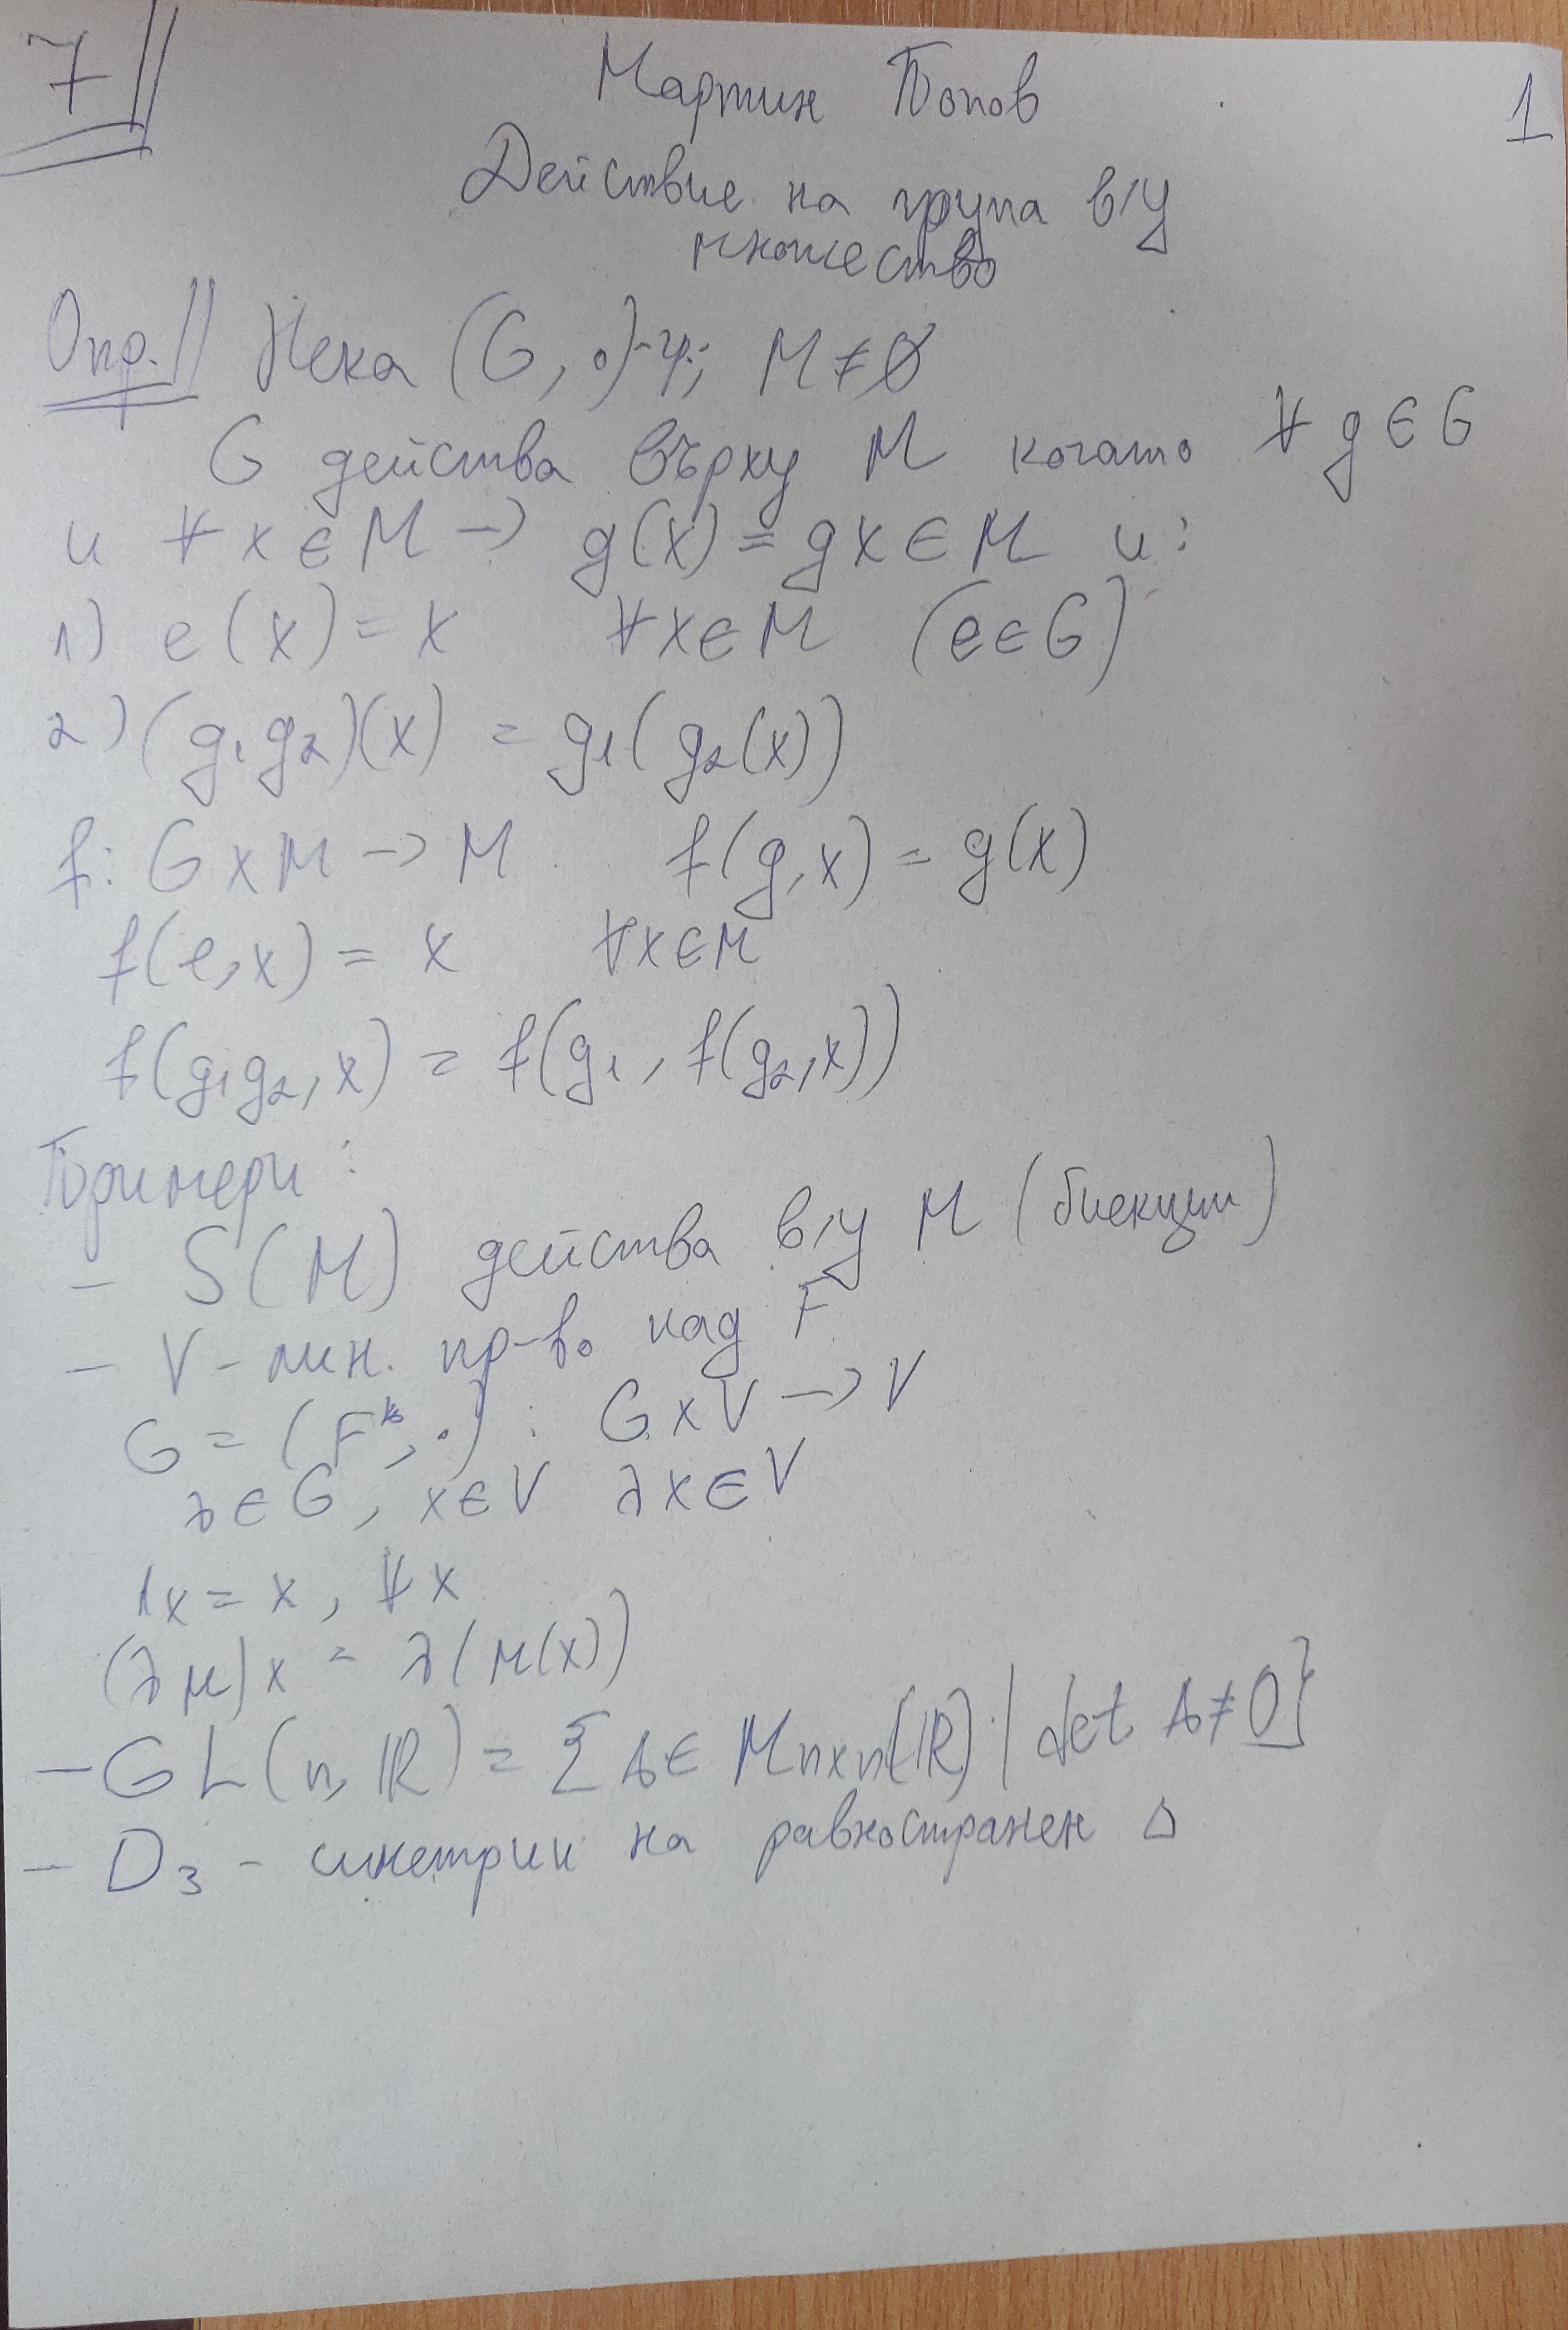 7
Мартин Попов
1
Действие на група в/у
множество
Опр. Нека (G, ∘) - гр.; M ≠ ∅
G действа върху M когато ∀ g ∈ G
и ∀ x ∈ M → g(x) = gx ∈ M и:
1) e(x) = x ∀x ∈ M (e ∈ G)
2) (g₁g₂)(x) = g₁(g₂(x))
f: G x M → M f(g, x) = g(x)
f(e, x) = x ∀x ∈ M
f(g₁g₂, x) = f(g₁, f(g₂, x))
Примери:
- S(M) действа в/у M (биекции)
- V - лин. пр-во над F
G = (F*, ·) : G x V → V
λ ∈ G, x ∈ V λx ∈ V
1x = x, ∀x
(λμ)x = λ(μ(x))
- GL(n, ℝ) = {A ∈ Mₙₓₙ(ℝ) | det A ≠ 0}
- D₃ - симетрии на равностранен Δ